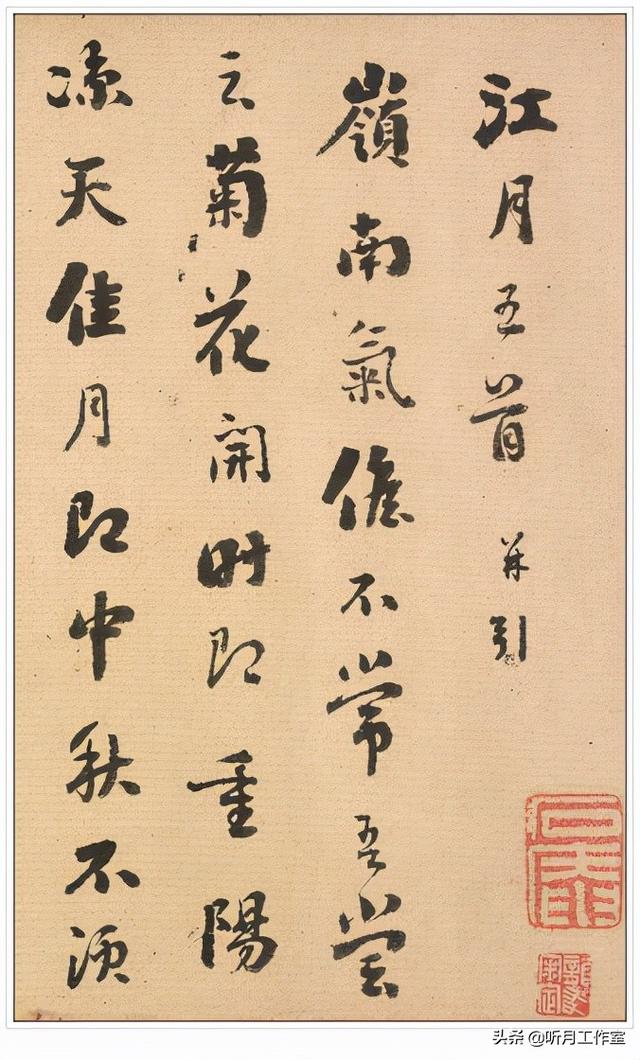 江月五首 并引
嶺南氣候不常吾嘗
云菊花開時即重陽
涼天佳月即中秋不須
头条 @听月工作室